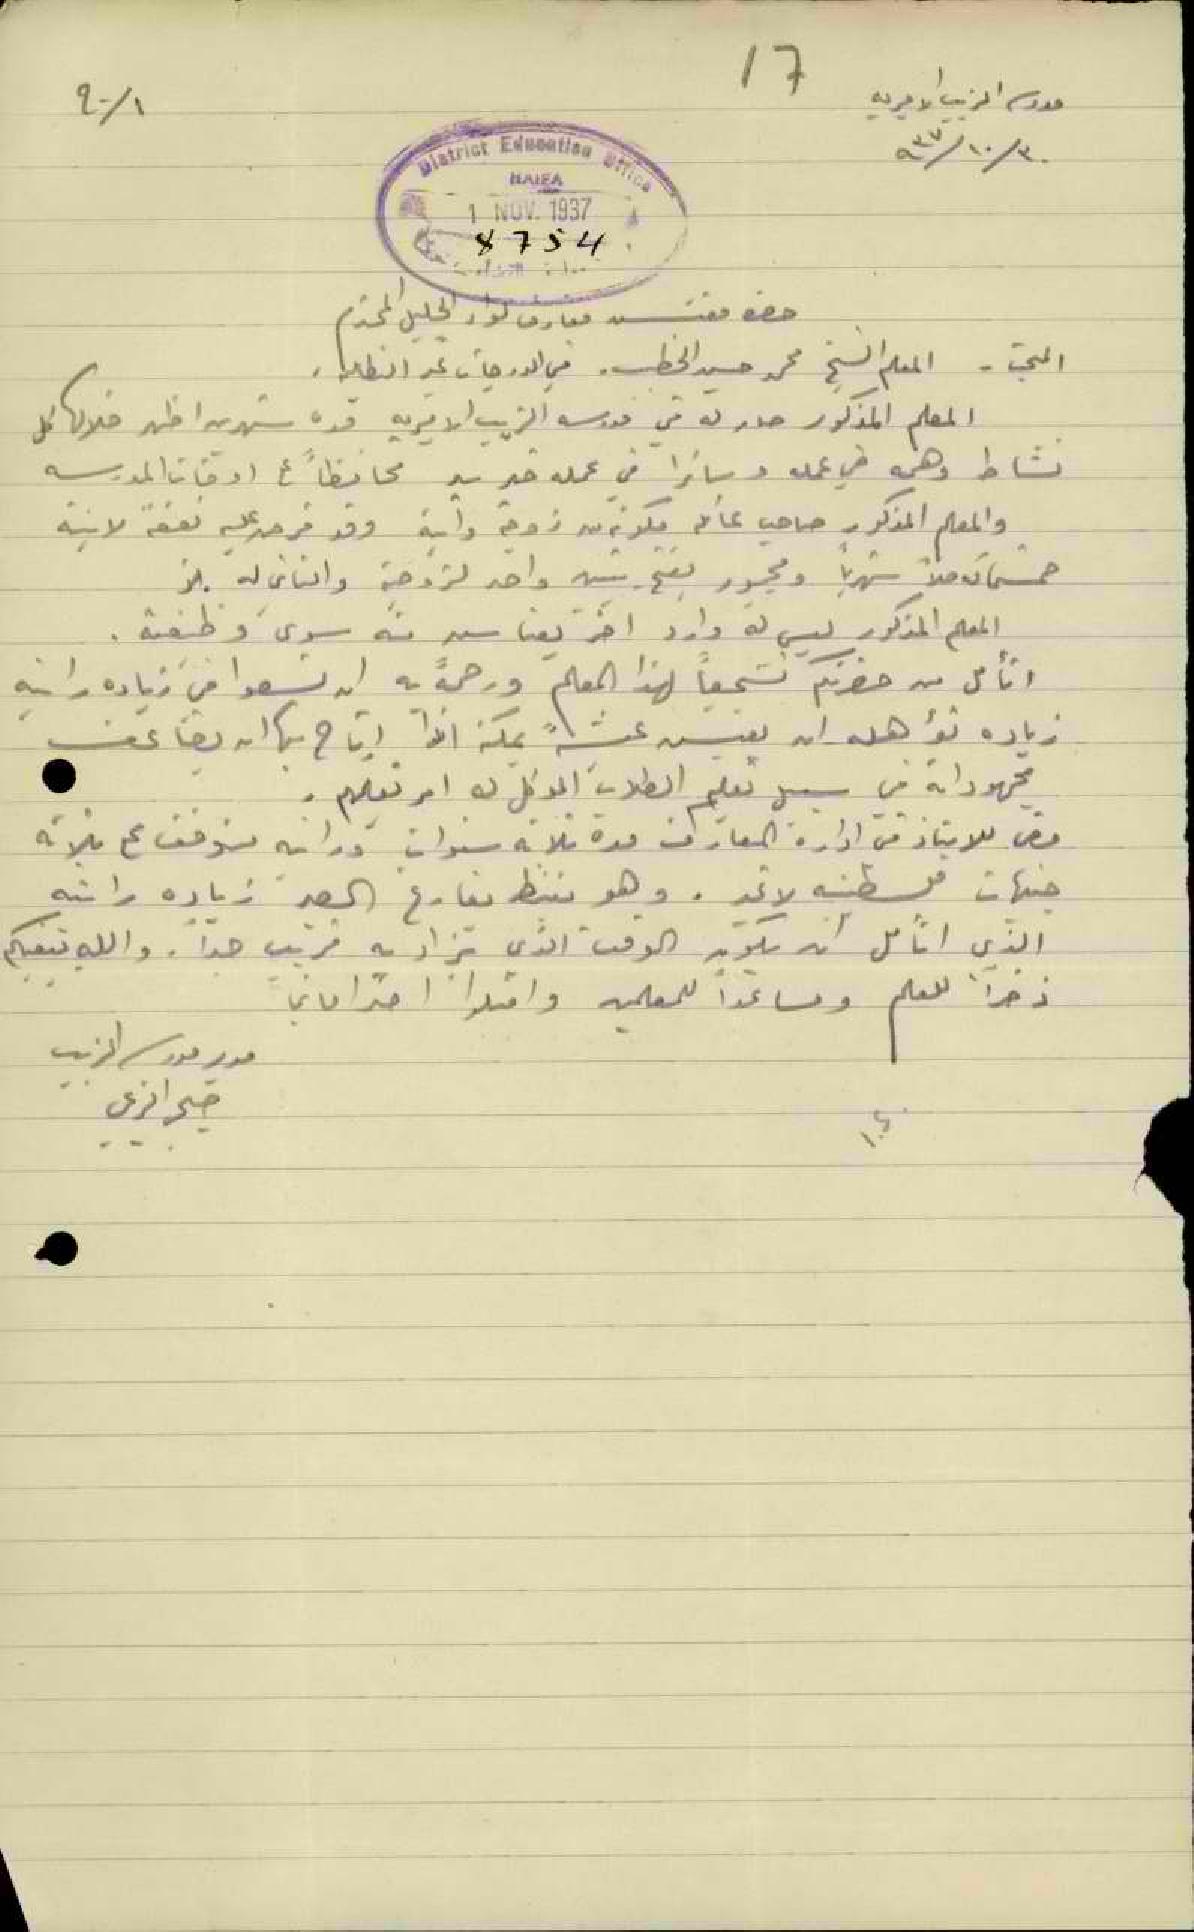 17
مدرسة الزيب الاميرية
٩٠/١
٩٣٧/١٠/٣٠
District Education Office
HAIFA
1 NOV. 1937
8754
حضرة مفتش معارف لواء الجليل المحترم
المبحث - المعلم الشيخ محمد حسين الخطيب. في الدرجات غير النظامية.
المعلم المذكور صار له في مدرسة الزيب الاميرية مدة شهرين اظهر خلالها كل
نشاط وهمه في عمله وسائرا في عمله خير سير محافظاً على اوقات المدرسه
والمعلم المذكور صاحب عائله مكونة من زوجة وابنة وقد فرض عليه نفقة لابنته
خمسمائة ملاً شهرياً ومجبور بفتح بيتين واحد لزوجته والثاني له بالزيب
المعلم المذكور ليس له وارد آخر يعتاش منه سوى وظيفته.
اتأمل من حضرتكم تشجيعاً لهذا المعلم ورحمةً به ان تسعوا في زياده راتبه
زياده تؤهله ان يعيش عيشةً يمكنه اذا ارتاح بها ان يضاعف
مجهوداته في سبيل تعليم الطلاب الموكل له امر تعليمهم.
مضى للاستاذ في ادارة المعارف مدة ثلاثة سنوات وراتبه متوقف على ثلاثة
جنيهات فلسطينيه لا غير. وهو ينتظر بفارغ الصبر زياده راتبه
الذي اتأمل ان يكون الوقت الذي يزاد به قريب جداً. والله يبقيكم
ذخراً للعلم ومساعداً للمعلمين واقبلوا احتراماتي
مدير مدرسة الزيب